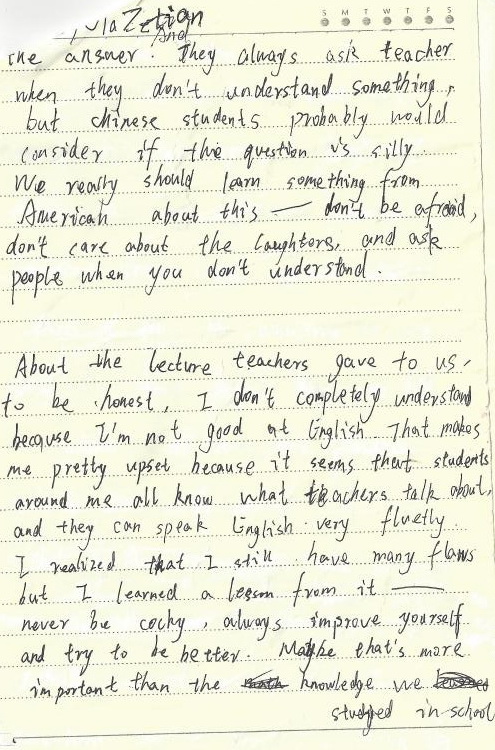 S M T W T F S
And
the answer. They always ask teacher
when they don't understand something,
but chinese students probably would
consider if the question is silly.
We really should learn something from
American about this — don't be afraid,
don't care about the laughters, and ask
people when you don't understand.
About the lecture teachers gave to us,
to be honest, I don't completely understand
because I'm not good at English. That makes
me pretty upset because it seems that students
around me all know what teachers talk about,
and they can speak English very fluetly.
I realized that I still have many flaws
but I learned a lesson from it ——
never be cocky, always improve yourself
and try to be better. Maybe that's more
important than the knowledge we
studyed in school